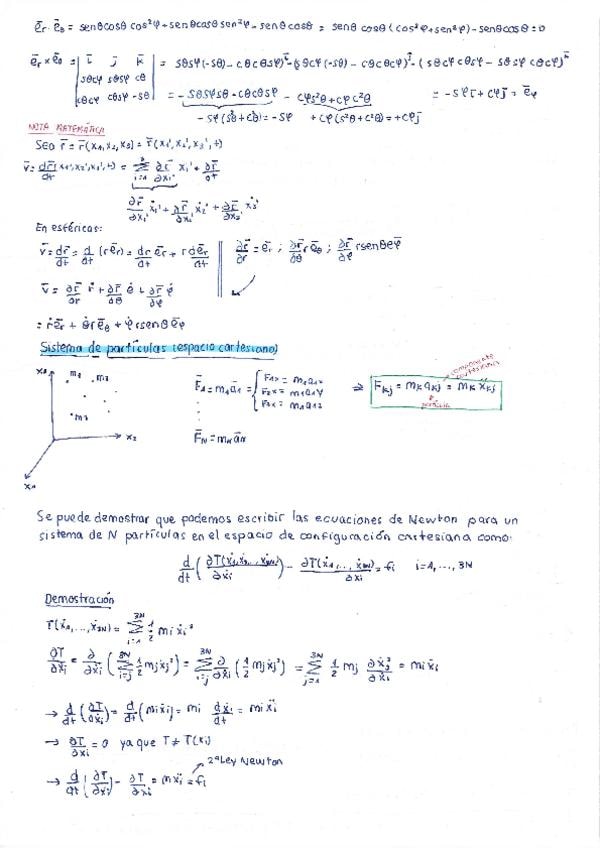 ēr · ēθ = senθcosθ cos²φ + senθcosθ sen²φ - senθ cosθ = senθ cosθ (cos²φ + sen²φ) - senθcosθ = 0
ēr × ēθ = | ī j̄ k̄ | = sθsφ(-sθ) - cθcθsφ)ī - (sθcφ(-sθ) - cθcθcφ)j̄ - (sθcφ cθsφ - sθsφ cθcφ)k̄
sθcφ sθsφ cθ
cθcφ cθsφ -sθ = -sθsφsθ - cθcθsφ - cφs²θ + cφc²θ = -sφ ī + cφ j̄ = ēφ
-sφ(s²θ + c²θ) = -sφ + cφ(s²θ + c²θ) = +cφ j̄
NOTA MATEMÁTICA
Sea r̄ = r̄(x1, x2, x3) = r̄(x1', x2', x3', t)
v̄ = dr̄/dt (x1', x2', x3', t) = Σ(i=1→3) ∂r̄/∂xi' ẋi' + ∂r̄/∂t
∂r̄/∂x1' ẋ1' + ∂r̄/∂x2' ẋ2' + ∂r̄/∂x3' ẋ3'
En esféricas:
v̄ = dr̄/dt = d/dt (r ēr) = dr/dt ēr + r dēr/dt || ∂r̄/∂r = ēr ; ∂r̄/∂θ = r ēθ ; ∂r̄/∂φ = r senθ ēφ
v̄ = ∂r̄/∂r ṙ + ∂r̄/∂θ θ̇ + ∂r̄/∂φ φ̇
= ṙ ēr + θ̇ r ēθ + φ̇ r senθ ēφ
Sistema de partículas (espacio cartesiano)
x3 m2 m1 m3 x2 x1
F̄1 = m1 ā1 = { F1x = m1 a1x
F2x = m1 a1y
F3x = m1 a1z
F̄N = mN āN
⇒ Fkj = mk akj = mk ẍkj
componente cartesiana
partícula
Se puede demostrar que podemos escribir las ecuaciones de Newton para un
sistema de N partículas en el espacio de configuración cartesiana como:
d/dt ( ∂T(ẋ1, ẋ2, ..., ẋ3N)/∂ẋi ) - ∂T(ẋ1, ..., ẋ3N)/∂xi = fi i = 1, ..., 3N
Demostración
T(ẋ1, ..., ẋ3N) = Σ(i=1→3N) 1/2 mi ẋi²
∂T/∂ẋi = ∂/∂ẋi ( Σ(i=j→3N) 1/2 mj ẋj² ) = Σ(i=j→3N) ∂/∂ẋi (1/2 mj ẋj²) = Σ(j=1→3N) 1/2 mj ∂ẋj²/∂ẋi = mi ẋi
→ d/dt (∂T/∂ẋi) = d/dt (mi ẋi) = mi dẋi/dt = mi ẍi
→ ∂T/∂xi = 0 ya que T ≠ T(xi)
2ª Ley Newton
→ d/dt (∂T/∂ẋi) - ∂T/∂xi = mẍi = fi